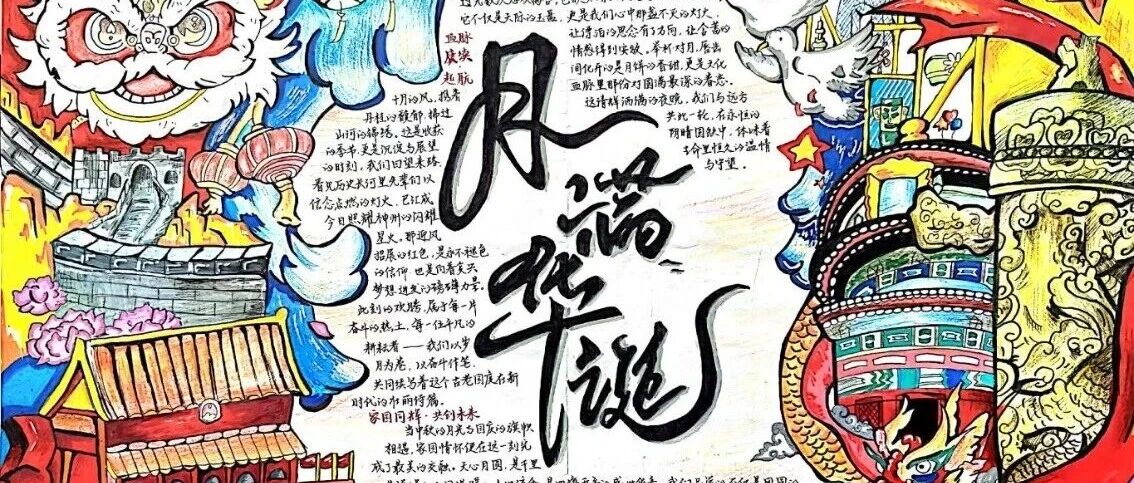 它不仅是天际的玉盘，更是我们心中那盏不灭的灯火，
让漂泊的思念有了方向，让含蓄的
情感得到安放，举杯对月，唇齿
间化开的是月饼的香甜，更是文化
血脉里那份对圆满最深的眷恋。
这清辉洒满的夜晚，我们与远方
共此一轮，在永恒的
阴晴圆缺中，体味着
生命里恒久的温情
与守望。
月满华诞
血脉
赓续
起航
十月的风，携着
丹桂的馥郁，拂过
山河的锦绣，这是收获
的季节，更是沉淀与展望
的时刻，我们回望来路
看见历史长河里先辈们以
信念点燃的灯火，已汇成
今日照耀神州的闪耀
星火，那迎风
招展的红色，是永不褪色
的信仰，也是向着复兴
梦想进发的磅礴力量。
此刻的欢腾，属于每一片
奋斗的热土，每一位平凡的
耕耘者——我们以岁
月为卷，以奋斗作笔
共同续写着这个古老国度在新
时代的壮丽诗篇。
家国同辉·共创未来
当中秋的月光与国庆的旗帜
相遇，家国情怀便在这一刻完
成了最美的交融。天心月圆，是千里